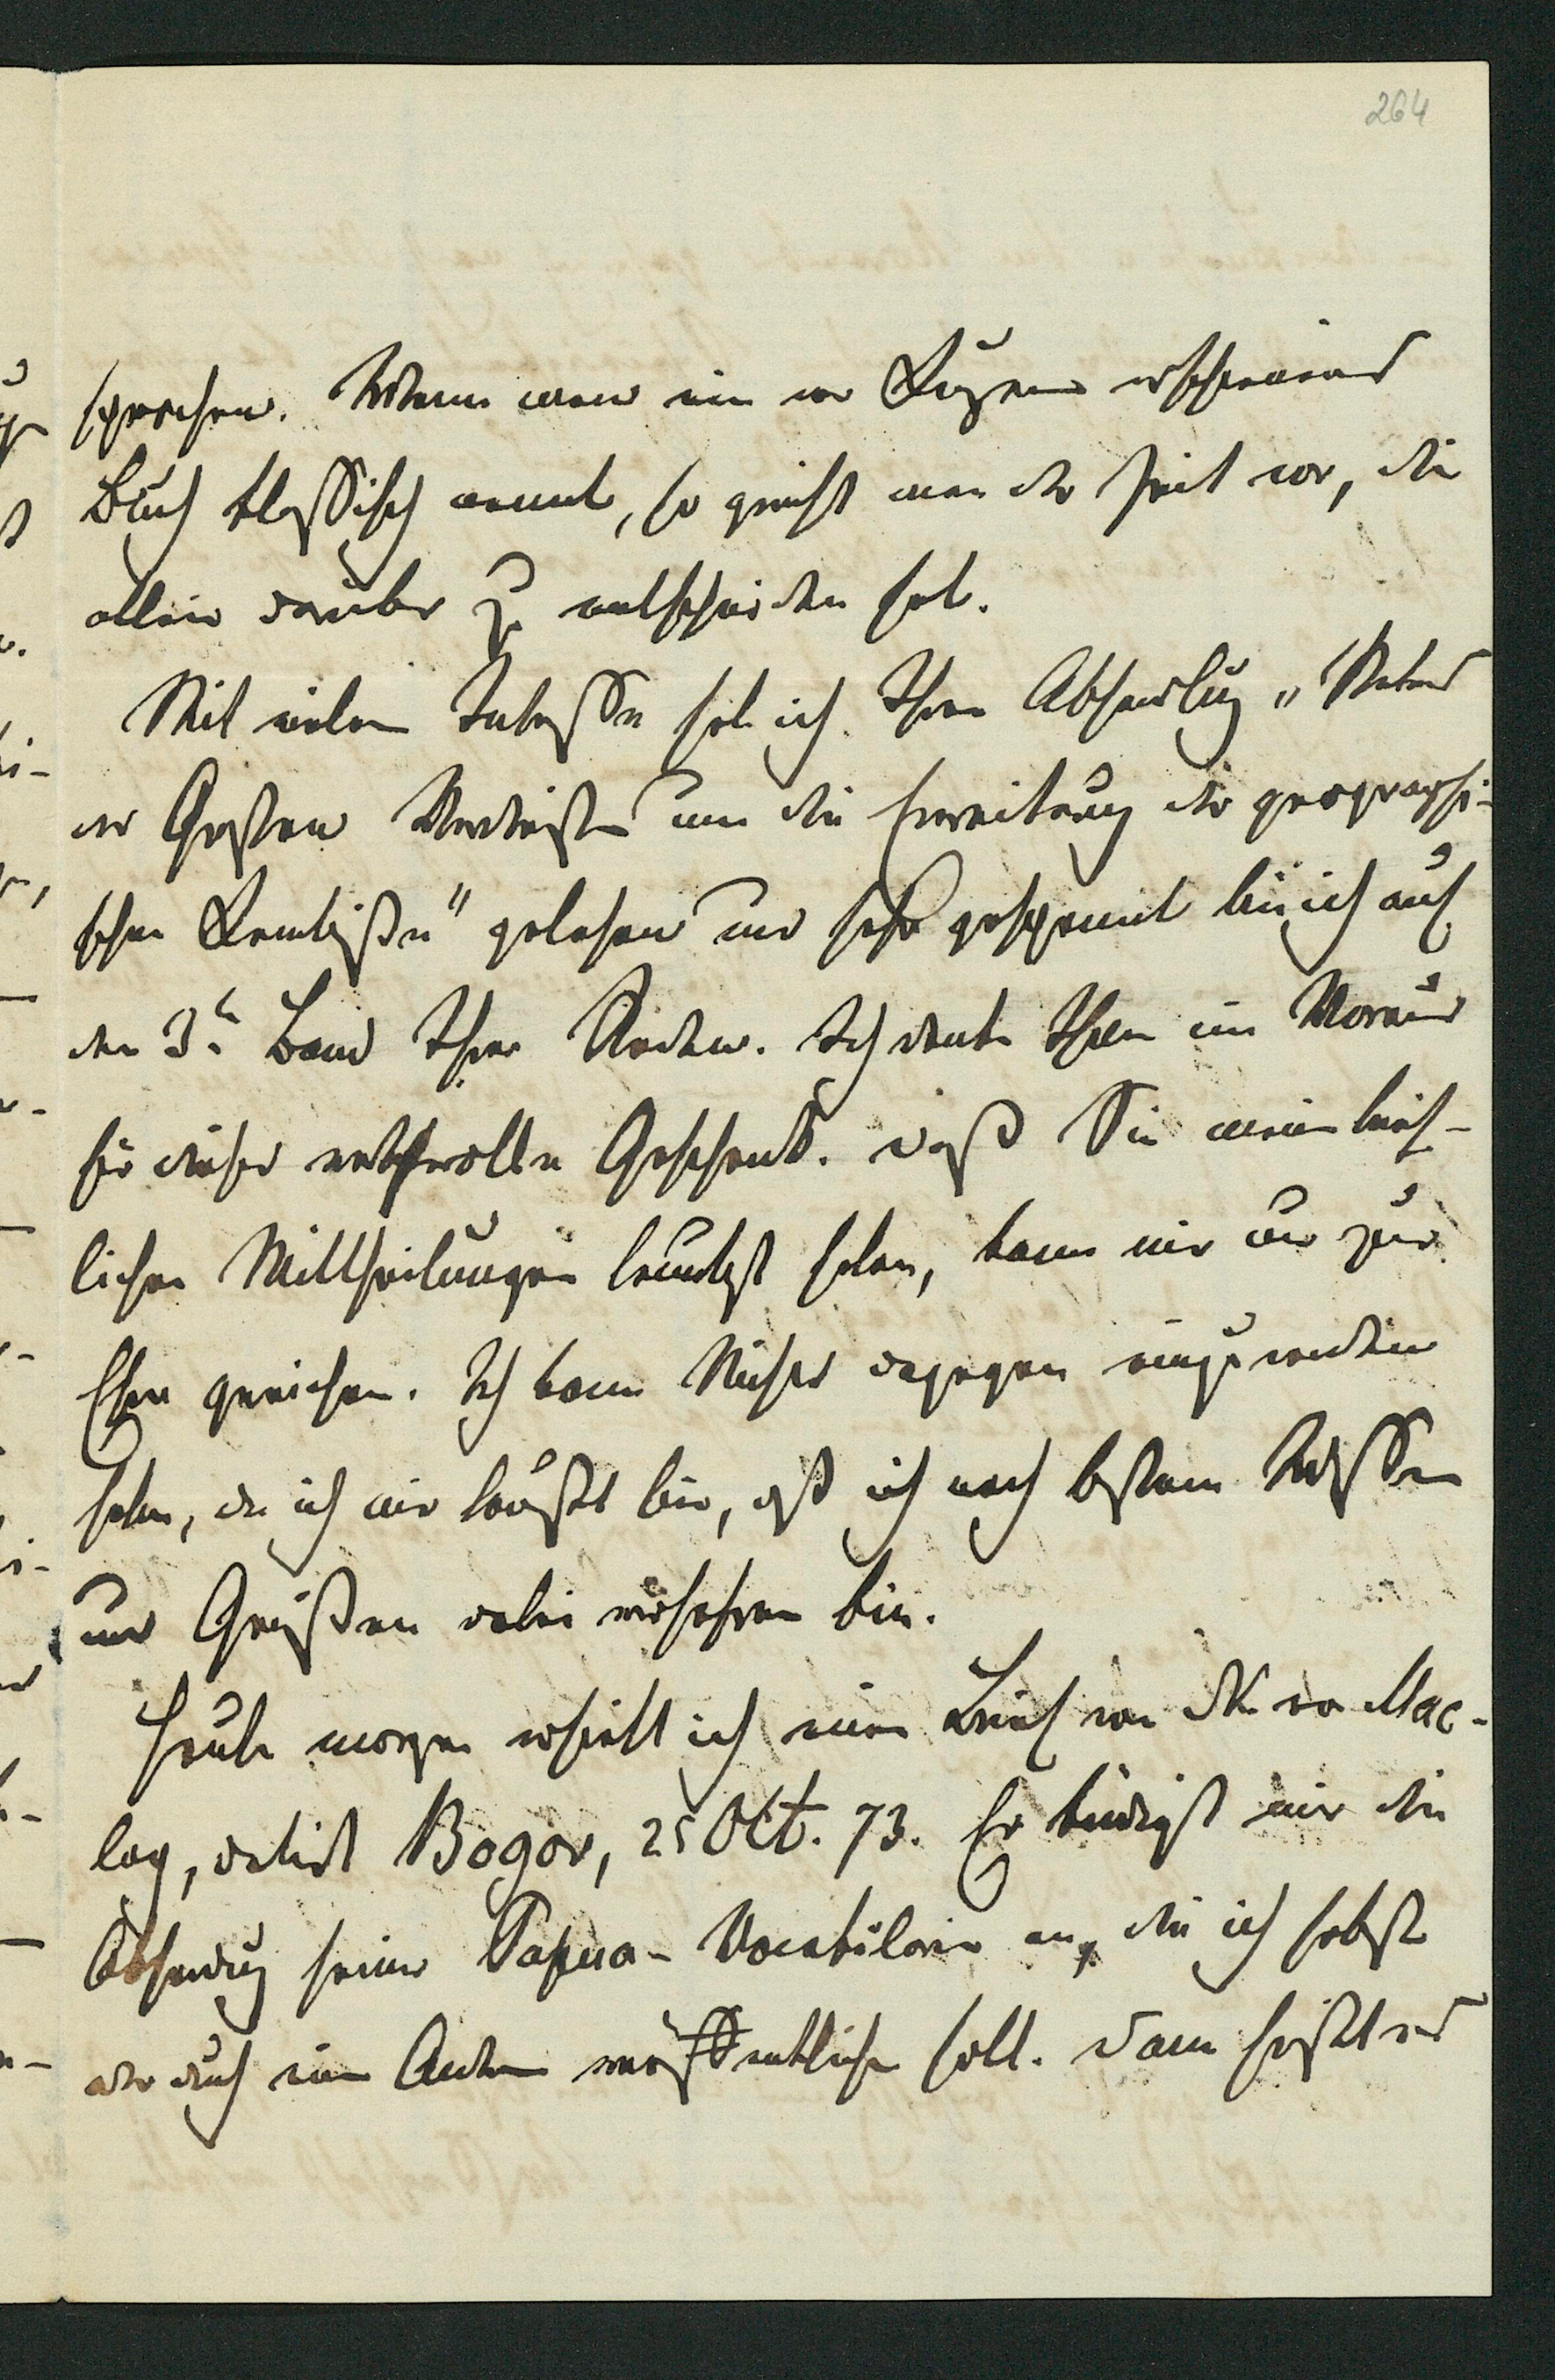 264
sprochen. Wenn man ein vor Kurzem erschienenes
Buch klassisch nennt, so greift man der Zeit vor, die
allein darüber zu entscheiden hat.
Mit vielem Interesse hab ich Ihre Abhandlung „Peters
des Großen Verdienste um die Erweiterung der geographi-
schen Kenntnisse" gelesen und sehr gespannt bin ich auf
den 3n Band Ihrer Reden. Ich danke Ihnen im Voraus
für dieses werthvolle Geschenk. Daß Sie meine brief-
lichen Mittheilungen benutzt haben, kann mir nur zur
Ehre gereichen. Ich kann Nichts dagegen einzuwenden
haben, da ich mir bewußt bin, daß ich nach bestem Wissen
und Gewissen dabei verfahren bin.
Heute morgen erhielt ich einen Brief von N. von Mac-
lay, datirt Bogor, 25 Okt. 73. Er kündigt mir die
Absendung seiner Papua-Vocabularien an, die ich selbst
oder durch einen Andern veröffentlichen soll. Dann heißt es